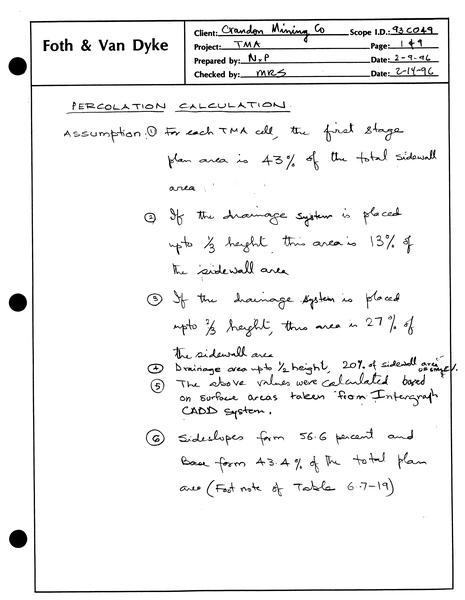 Foth & Van Dyke
Client: Crandon Mining Co Scope I.D.: 93C049
Project: TMA Page: 1 of 9
Prepared by: N.P Date: 2-9-96
Checked by: MRS Date: 2-14-96
PERCOLATION CALCULATION
Assumption: ① For each TMA cell, the first stage
plan area is 43% of the total sidewall
area
② If the drainage system is placed
upto 1/3 height, this area is 13% of
the sidewall area
③ If the drainage system is placed
upto 2/3 height, this area is 27% of
the sidewall area
④ Drainage area upto 1/2 height, 20% of sidewall area
⑤ The above values were calculated based
on surface areas taken from Intergraph
CADD system.
⑥ Sideslopes form 56.6 percent and
Base form 43.4% of the total plan
area (Foot note of Table 6.7-19)